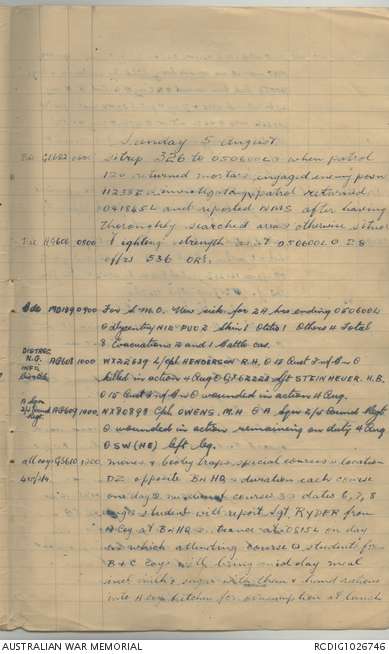 Sunday 5 August
sitrep 326 to 050600L when patrol
120 returned mortars engaged enemy posn
112355 investigating patrol returned
041845L and reported NMS after having
thoroughly searched area otherwise sitrep
Fighting strength 050600L 28
offrs 536 ORs.
Bde MD189 0900 For S.M.O. New sick for 24 hrs ending 050600L
dysentry NIL PUO 2 Skin 1 Otitis 1 Others 4 Total
8 Evacuations 2 and 1 battle cas.
DISTREC N.G. AG608 1000 WX22639 L/Cpl HENDERSON R.H. 15 Aust Inf Bn
killed in action 4 Aug QX62228 Sgt STEINHEUER. H.B.
15 Aust Inf Bn wounded in action 4 Aug.
AG609 1000 NX80898 Cpl OWENS. M.H. A Sqn 2/4 Armd Regt
wounded in action remaining on duty 4 Aug
SW (HE) left leg.
all coys GS610 1200 mines & booby traps special courses location
DZ opposite Bn HQ duration each course
one day dates 6, 7, 8
Aug student will report Sgt. RYDER from
A Coy at Bn HQ entrance at 0815L on day
on which attending course students for
B & C Coys will bring mid day meal
incl milk & sugar with them & hand rations
into A coy kitchen for consumption at lunch
AUSTRALIAN WAR MEMORIAL
RCDIG1026746